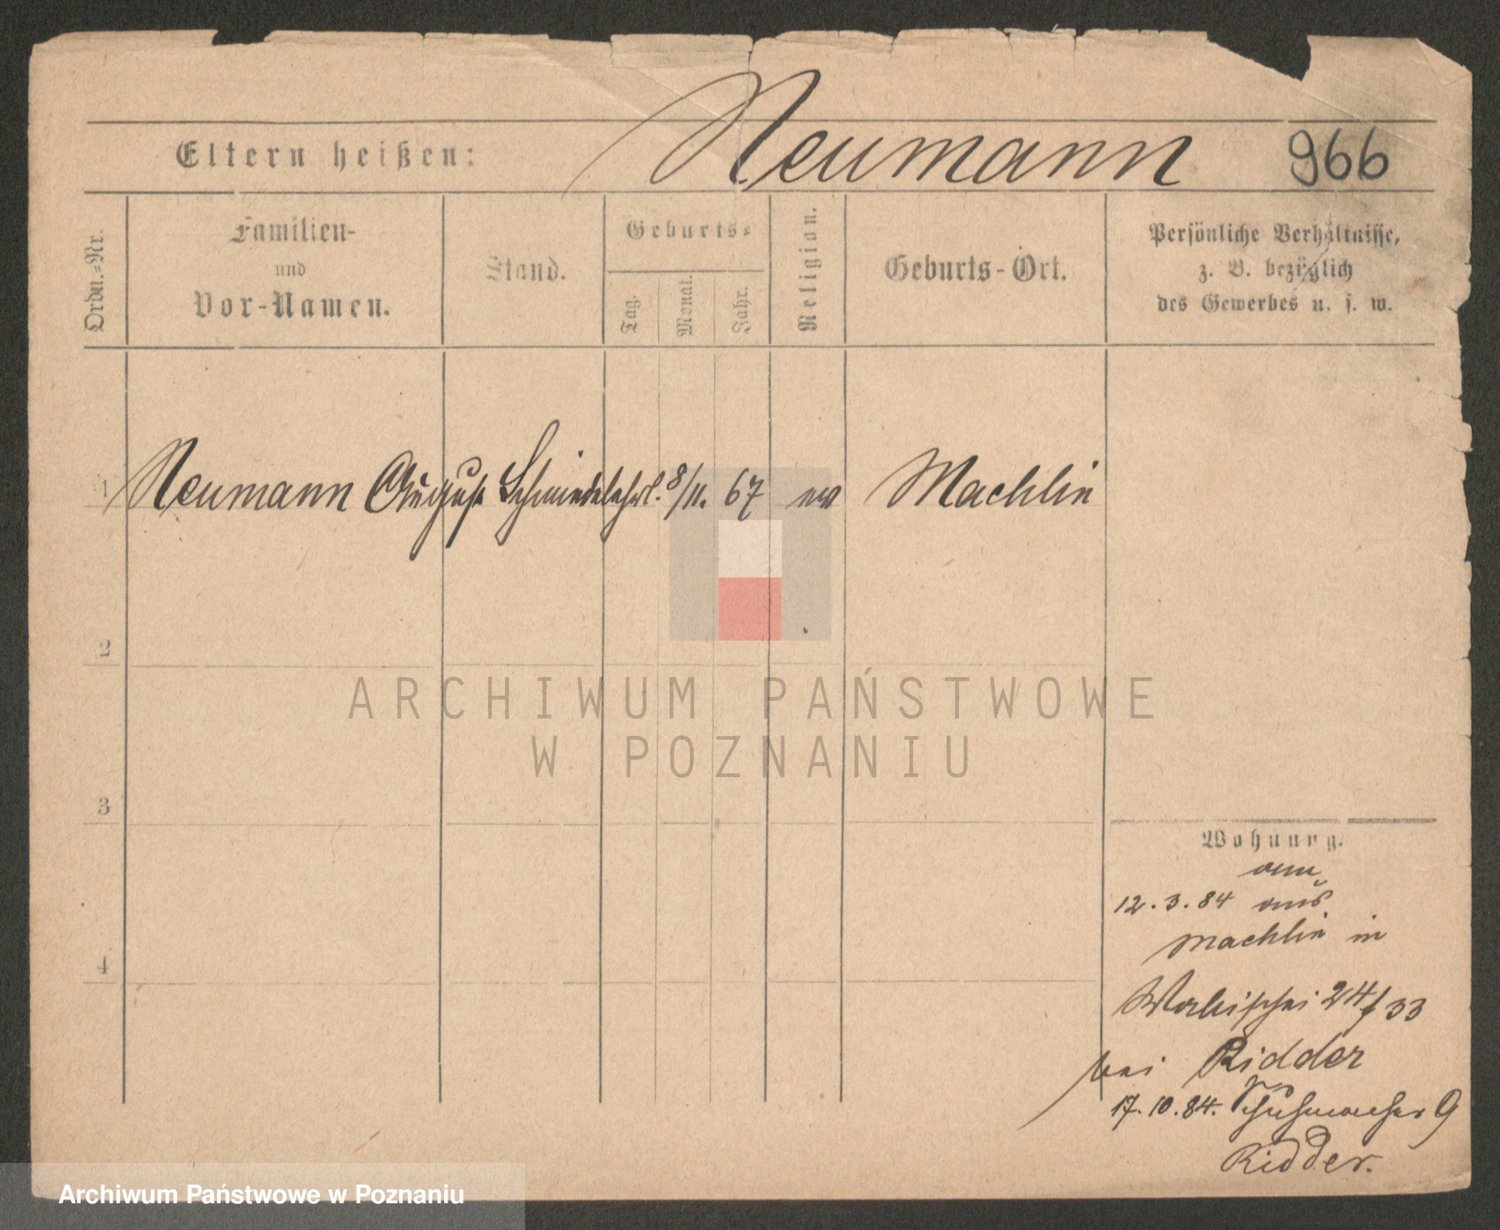 Eltern heißen: Neumann 966
Ordn.=Nr.
Familien-
und
Vor-Namen.
Stand.
Geburts=
Tag.
Monat.
Jahr.
Religion.
Geburts-Ort.
Persönliche Verhältnisse,
z. B. bezüglich
des Gewerbes u. s. w.
1 Neumann August Schmiedelehrl. 8/11. 67 ev Machlin
2
ARCHIWUM PAŃSTWOWE
W POZNANIU
3
4
Wohnung.
am
12.3.84 aus
Machlin in
Wallischei 24/33
bei Ridder
17.10.84. Schuhmacher 9
Ridder.
Archiwum Państwowe w Poznaniu